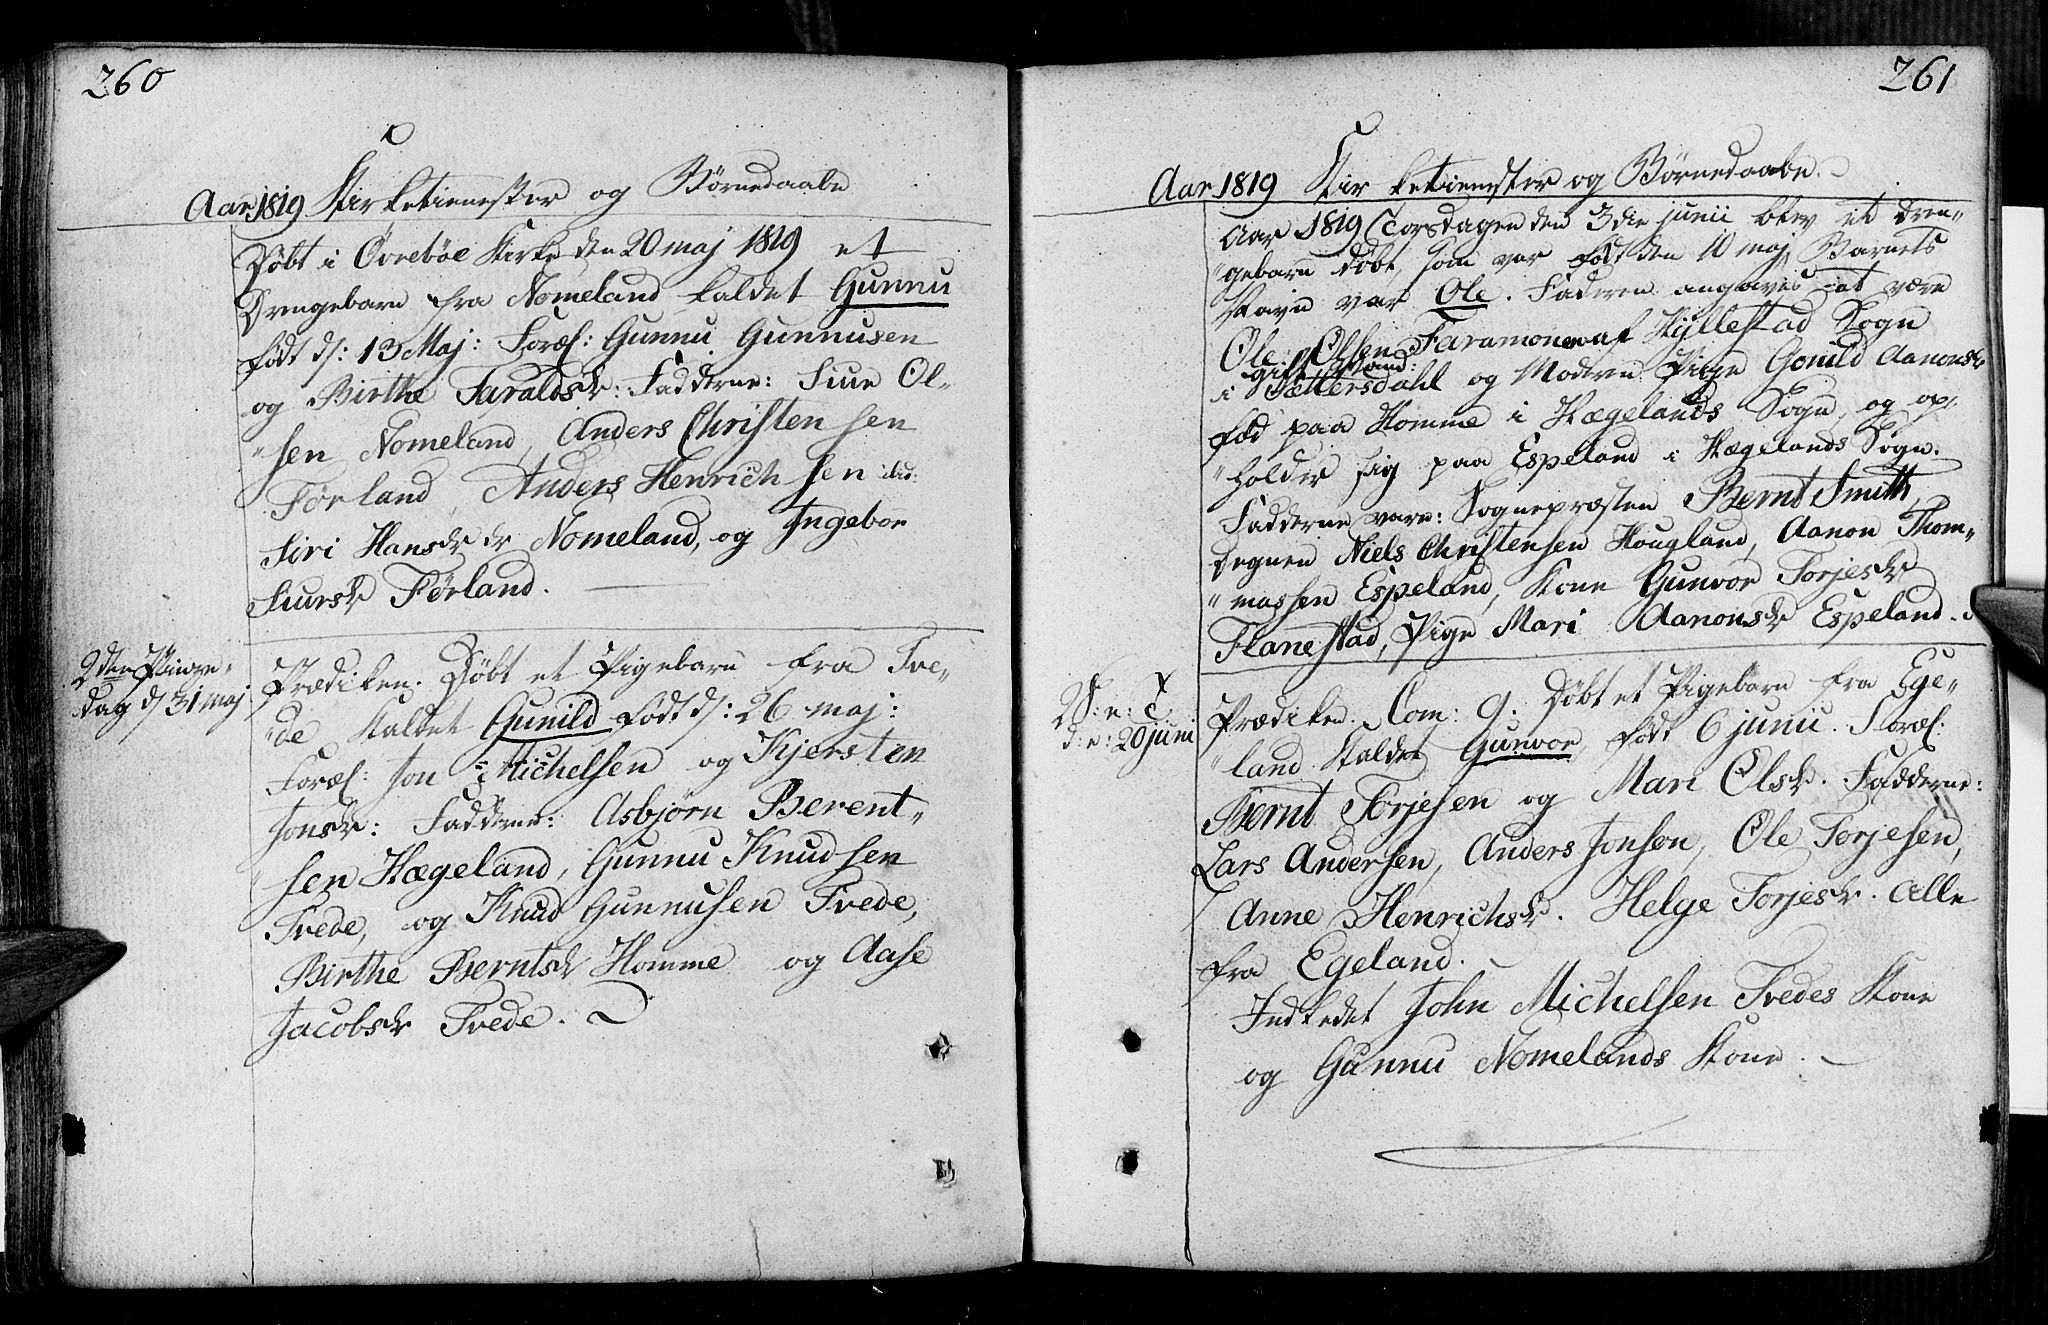 260
Aar 1819 Kirketienester og Børnedaabe
Døbt i Øvrebøe Kirke den 20 maj 1819 et
Drengebarn fra Nomeland kaldet Gunnu
født d: 13 Maj: Foræl: Gunnu Gunnusen
og Birthe Taraldsdr: Fadderne: Siur Ol-
"sen Nomeland, Anders Christensen
Førland, Anders Henrichsen
Siri Hansdr Nomeland, og Ingebor
Siursdr Førland.
2den Pindse-
dag d 31 maj
Prædiken. Døbt et Pigebarn fra Tve-
"de kaldet Gunild født d: 26 maj:
Foræl: Jon Michelsen og Kjersten
Jonsdr: Fadderne: Asbjørn Berent-
sen Hægeland, Gunnu Knudsen
Tvede, og Knud Gunnusen Tvede,
Birthe Berntsdr Homme og Aase
Jacobsdr Tvede.
261
Aar 1819 Kirketienester og Børnedaabe.
Aar 1819 Torsdagen den 3die junii blev et Dren-
"gebarn døbt, som var født den 10 maj, Barnets
Navn var Ole. Faderen angaves at være
Ole Olsen Faramoen af Hyllestad Sogn
gift Mand:
i Sættersdahl og Moderen Pige Gonild Aanonsdr
fød paa Homme i Hægelands Sogn, og op-
"holder sig paa Espeland i Hægelands Sogn.
Fadderne vare: Sognepræsten Bernt Smith,
Degnen Niels Christensen Hougland, Aanon Thom-
"massen Espeland, Kone Gunvor Torjesdr
Flanestad, Pige Mari Aanonsdr Espeland.
2 S: e: T
d: e: 20 juni
Prædiken. Com: 9. Døbt et Pigebarn fra Ege-
"land kaldet Gunvor, født 6 junii. Foræl:
Bernt Torjesen og Mari Olsdr. Fadderne:
Lars Andersen, Anders Jonsen, Ole Torjesen,
Anne Henrichsdr. Helge Torjesdr. Alle
fra Egeland.
Indledet John Michelsen Tvedes Kone
og Gunnu Nomelands Kone.